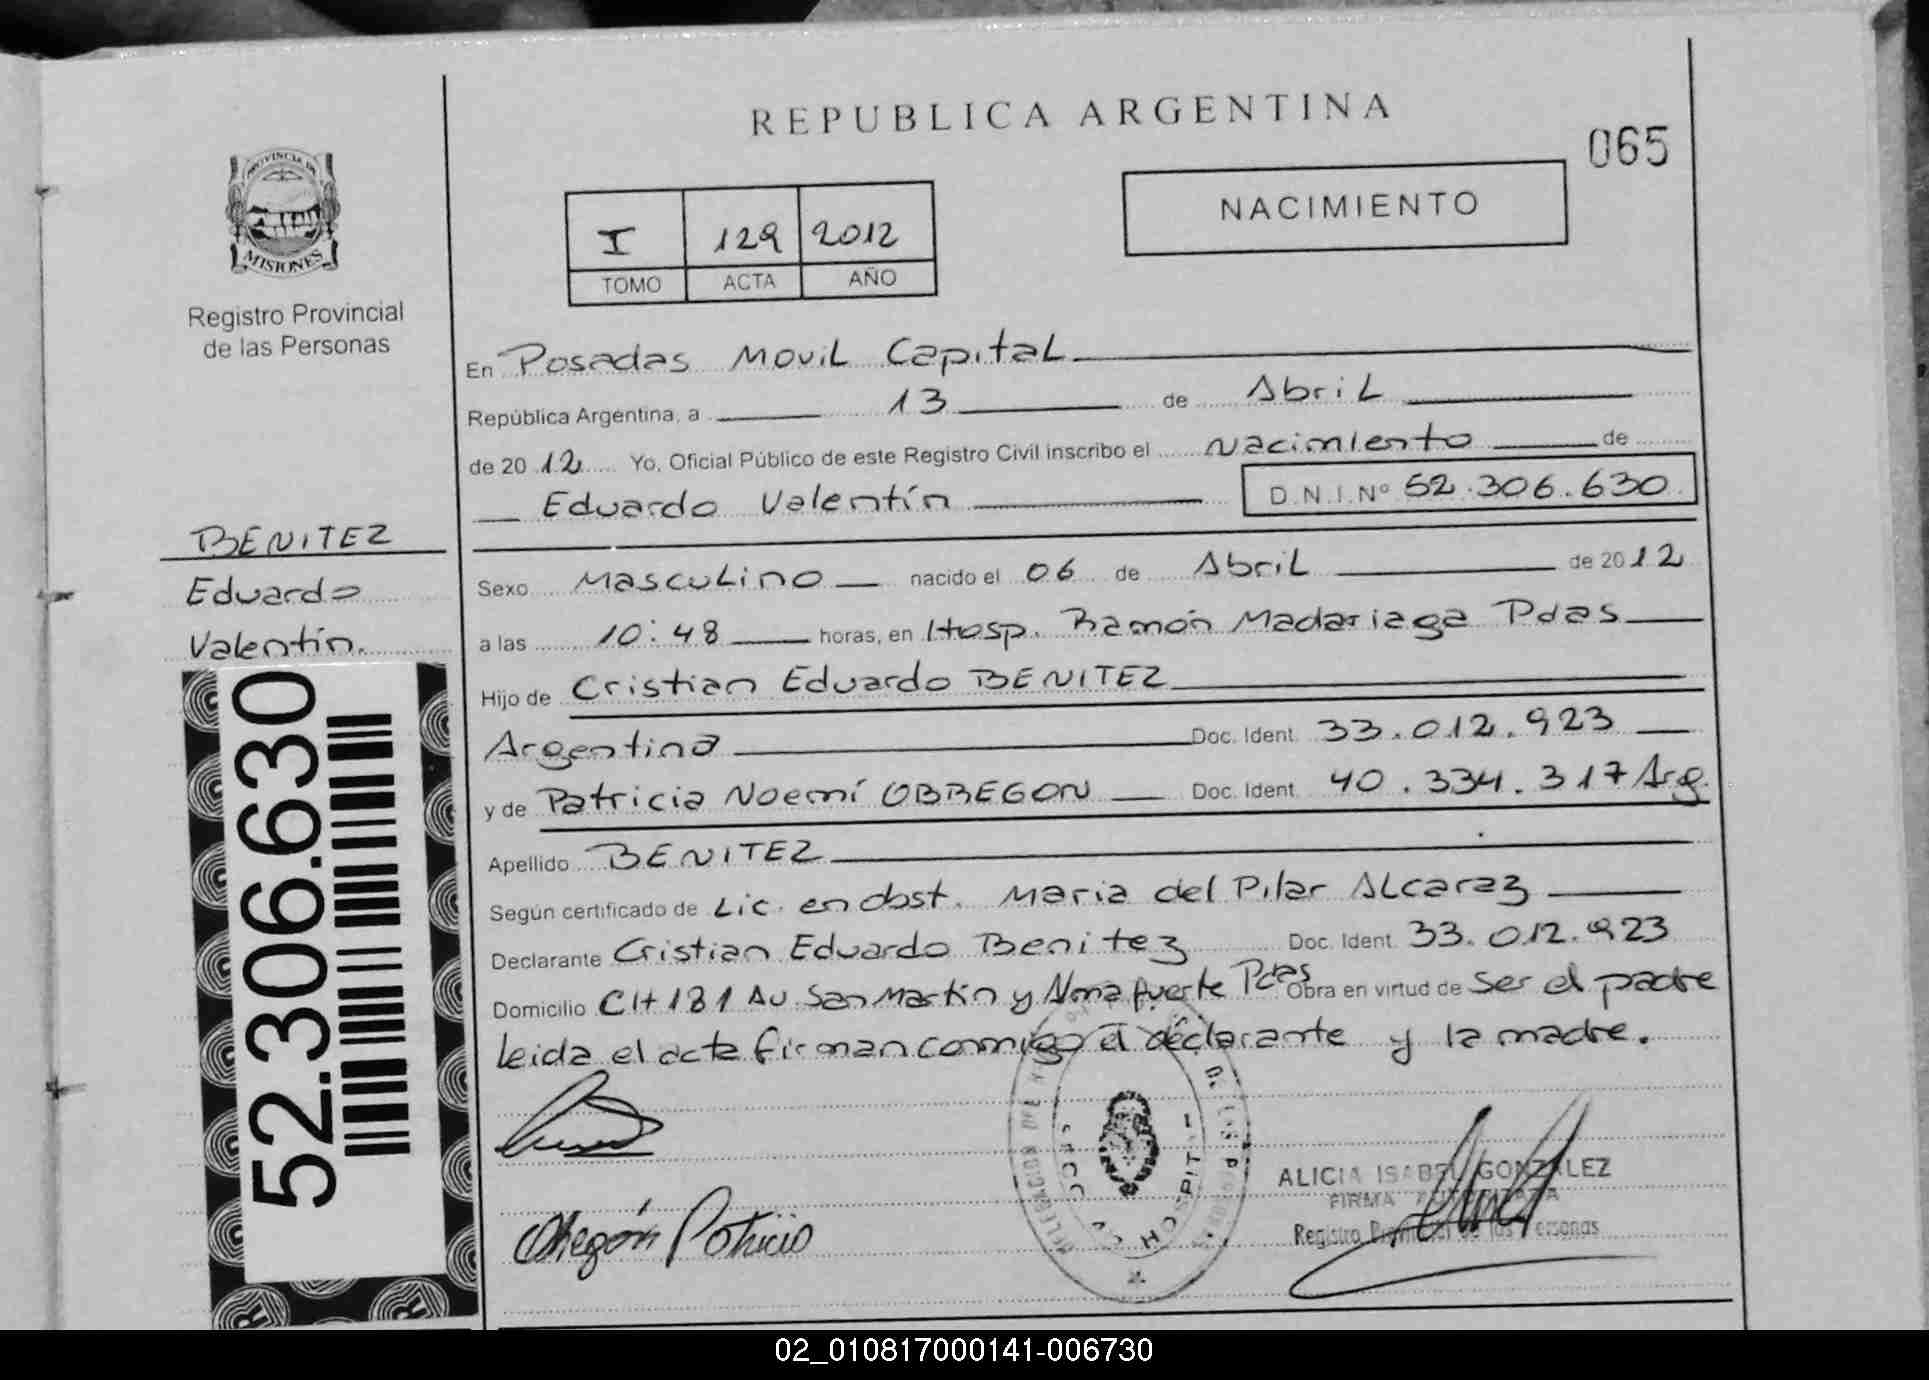 REPUBLICA ARGENTINA
065
PROVINCIA DE
MISIONES
Registro Provincial
de las Personas
I 129 2012
TOMO ACTA AÑO
NACIMIENTO
En Posadas Movil Capital
República Argentina, a 13 de Abril
de 2012 Yo, Oficial Público de este Registro Civil inscribo el Nacimiento de
Eduardo Valentín D.N.I.Nº 52.306.630
BENITEZ
Eduardo
Valentín.
52.306.630
Sexo Masculino nacido el 06 de Abril de 2012
a las 10:48 horas, en Hosp. Ramón Madariaga Pdas
Hijo de Cristian Eduardo BENITEZ
Argentina Doc. Ident. 33.012.923
y de Patricia Noemí OBREGON Doc. Ident. 40.334.317 Arg.
Apellido BENITEZ
Según certificado de Lic. en obst. Maria del Pilar Alcaraz
Declarante Cristian Eduardo Benitez Doc. Ident. 33.012.923
Domicilio CH 181 Av. San Martin y Alma fuerte Pdas Obra en virtud de ser el padre
leida el acta firman conmigo el declarante y la madre.
ALICIA ISABEL GONZALEZ
FIRMA AUTORIZADA
Registro Provincial de las Personas
Obregón Patricia
02_010817000141-006730